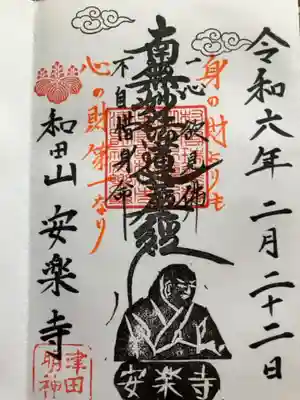 令和六年 二月二十二日
身の財よりも
一心欲見佛
南無妙法蓮華經
不自惜身命
心の財第一なり
和田山 安楽寺
安楽寺
津田
明神